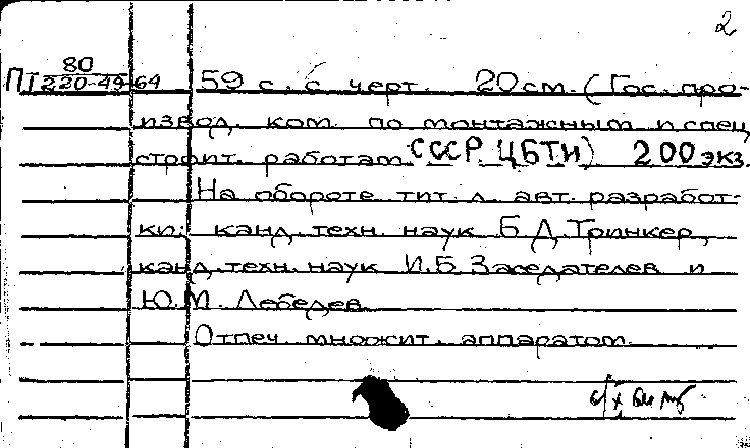 2
80
ПТ 220-49-64 59 с. с черт. 20 см. (Гос. про-
извод. ком. по монтажным и спец
строит. работам СССР. ЦБТИ) 200 экз.
На обороте тит. л. авт. разработ-
ки: канд. техн. наук Б. Д. Тринкер,
канд. техн. наук И. Б. Заседателев и
Ю. М. Лебедев.
Отпеч. множит. аппаратом.